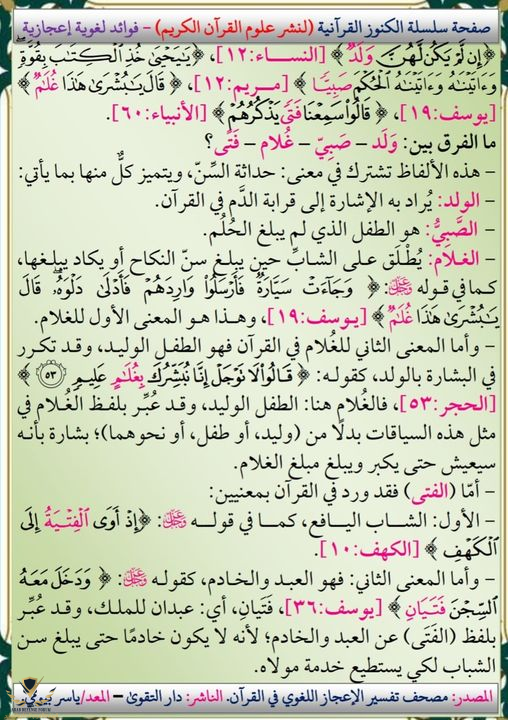 صفحة سلسلة الكنوز القرآنية (لنشر علوم القرآن الكريم) – فوائد لغوية إعجازية
﴿إِن لَّمْ يَكُن لَّهُنَّ وَلَدٌ﴾ [النساء:١٢]، ﴿يَٰيَحْيَىٰ خُذِ ٱلْكِتَٰبَ بِقُوَّةٍ
وَءَاتَيْنَٰهُ ٱلْحُكْمَ صَبِيًّا﴾ [مريم:١٢]، ﴿قَالَ يَٰبُشْرَىٰ هَٰذَا غُلَٰمٌ﴾
[يوسف:١٩]، ﴿قَالُوا۟ سَمِعْنَا فَتًى يَذْكُرُهُمْ﴾ [الأنبياء:٦٠].
ما الفرق بين: وَلَد – صَبِيّ – غُلام – فَتًى؟
– هذه الألفاظ تشترك في معنى: حداثة السِّنّ، ويتميز كلٌّ منها بما يأتي:
– الولد: يُراد به الإشارة إلى قرابة الدَّم في القرآن.
– الصَّبِيُّ: هو الطفل الذي لم يبلغ الحُلُم.
– الغلام: يُطْلَق على الشابِّ حين يبلغ سنّ النكاح أو يكاد يبلغها،
كما في قوله ﷻ: ﴿وَجَآءَتْ سَيَّارَةٌ فَأَرْسَلُوا۟ وَارِدَهُمْ فَأَدْلَىٰ دَلْوَهُۥ ۖ قَالَ
يَٰبُشْرَىٰ هَٰذَا غُلَٰمٌ﴾ [يوسف:١٩]، وهذا هو المعنى الأول للغلام.
– وأما المعنى الثاني للغُلام في القرآن فهو الطفل الوليد، وقد تكرر
في البشارة بالولد، كقوله: ﴿قَالُوا۟ لَا تَوْجَلْ إِنَّا نُبَشِّرُكَ بِغُلَٰمٍ عَلِيمٍ ٥٣﴾
[الحجر:٥٣]، فالغُلام هنا: الطفل الوليد، وقد عُبِّر بلفظ الغُلام في
مثل هذه السياقات بدلًا من (وليد، أو طفل، أو نحوهما)؛ بشارة بأنه
سيعيش حتى يكبر ويبلغ مبلغ الغلام.
– أمّا (الفتى) فقد ورد في القرآن بمعنيين:
– الأول: الشاب اليافع، كما في قوله ﷻ: ﴿إِذْ أَوَى ٱلْفِتْيَةُ إِلَى
ٱلْكَهْفِ﴾ [الكهف:١٠].
– وأما المعنى الثاني: فهو العبد والخادم، كقوله ﷻ: ﴿وَدَخَلَ مَعَهُ
ٱلسِّجْنَ فَتَيَانِ﴾ [يوسف:٣٦]، فَتَيَان، أي: عبدان للملك، وقد عُبِّر
بلفظ (الفَتَى) عن العبد والخادم؛ لأنه لا يكون خادمًا حتى يبلغ سن
الشباب لكي يستطيع خدمة مولاه.
المصدر: مصحف تفسير الإعجاز اللغوي في القرآن. الناشر: دار التقوى – المعد/ياسر بيومي.
ARAB DEFENSE FORUM